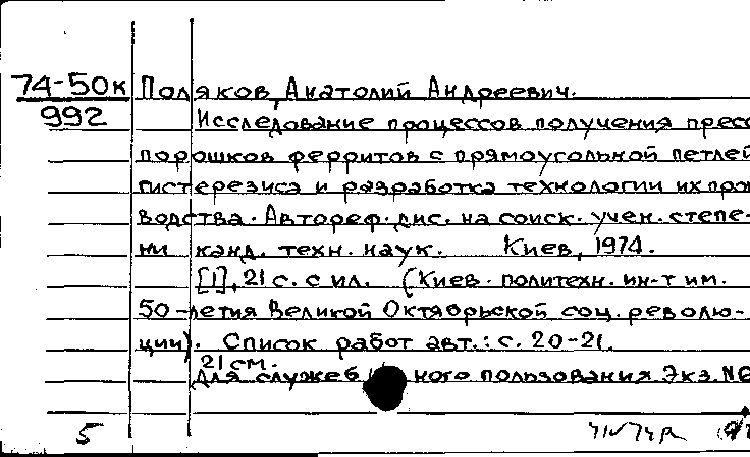 74-50к Поляков, Анатолий Андреевич.
992
Исследование процессов получения пресс
порошков ферритов с прямоугольной петлей
гистерезиса и разработка технологии их про
водства. Автореф. дис. на соиск. учен. степе-
ни канд. техн. наук. Киев, 1974.
[1], 21 с. с ил. (Киев. политехн. ин-т им.
50-летия Великой Октябрьской соц. револю-
ции). Список работ авт.: с. 20-21.
21 см.
Для служеб ного пользования. Экз. №
5